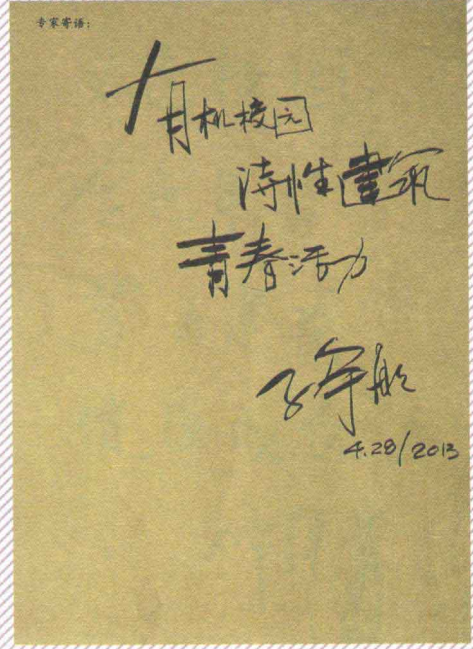 专家寄语：
有机校园
诗性建筑
青春活力
4.28/2013